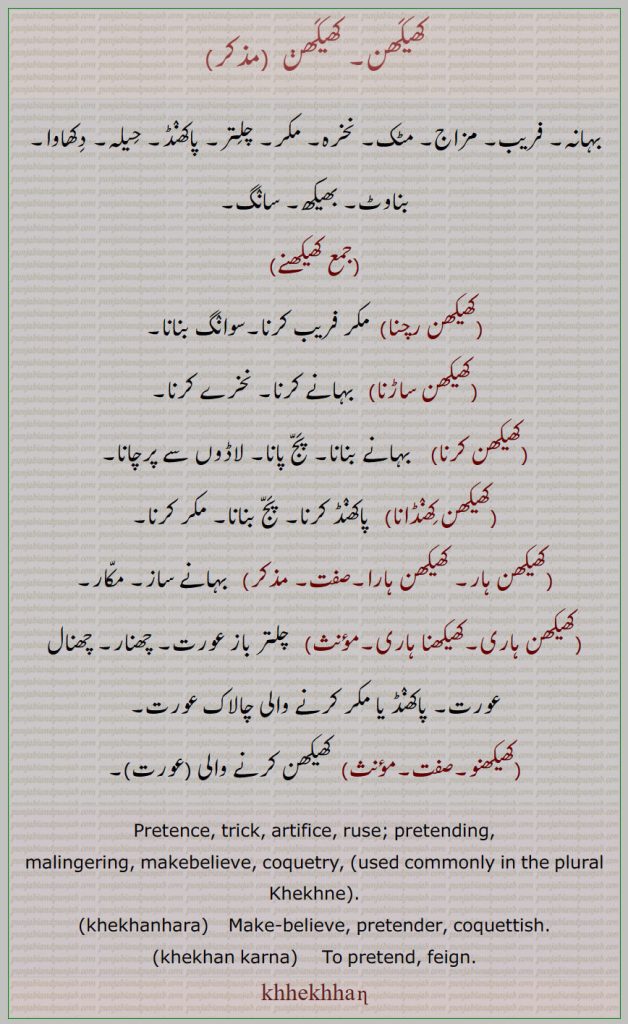 کھیکَھن۔ کھیکَھݨ (مذکر)
بہانہ۔ فریب۔ مزاج۔ مٹک۔ نخرہ۔ مکر۔ چلِتر۔ پاکھنْڈ۔ حِیلہ۔ دِکھاوا۔
بناوٹ۔ بھیکھ۔ سانگ۔
(جمع کھیکھنے)
(کھیکھن رچنا) مکر فریب کرنا۔سوانگ بنانا۔
(کھیکھن ساڑنا) بہانے کرنا۔ نخرے کرنا۔
(کھیکھن کرنا) بہانے بنانا۔ پَجّ پانا۔ لاڈوں سے پرچانا۔
(کھیکھن کِھنْڈانا) پاکھنْڈ کرنا۔ پَجّ بنانا۔ مکر کرنا۔
(کھیکھن ہار۔ کھیکھن ہارا۔صفت۔ مذکر) بہانے ساز۔ مکّار۔
(کھیکھن ہاری۔کھیکھنا ہاری۔مؤنث) چلتر باز عورت۔ چھنار۔ چھنال
عورت۔ پاکھنْڈ یا مکر کرنے والی چالاک عورت۔
(کھیکھنو۔صفت۔مؤنث) کھیکھن کرنے والی (عورت)۔
Pretence, trick, artifice, ruse; pretending,
malingering, makebelieve, coquetry, (used commonly in the plural
Khekhne).
(khekhanhara) Make-believe, pretender, coquettish.
(khekhan karna) To pretend, feign.
khhekhhaɳ